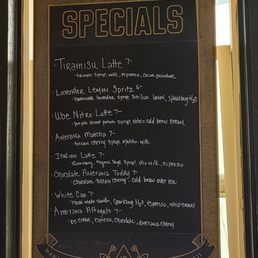 SPECIALS
Tiramisu Latte 7-
tiramisu syrup, milk, espresso, cocoa powder
Lavender Lemon Spritz 6-
housemade lavender syrup, lemon, Sparkling H2O
Ube Nitro Latte 7-
purple sweet potato syrup, nitro cold brew, cream
Amarena Matcha 7-
cherry syrup, matcha, milk
Italian Latte 7-
Rosemary, syrup, milk, espresso
Chocolate Amarena Toddy 7-
chocolate cherry, cold brew over ice
White Cap 7-
vanilla, Sparkling H2O, espresso
Amarena Affogato 7-
ice cream, espresso, chocolate, amarena cherry